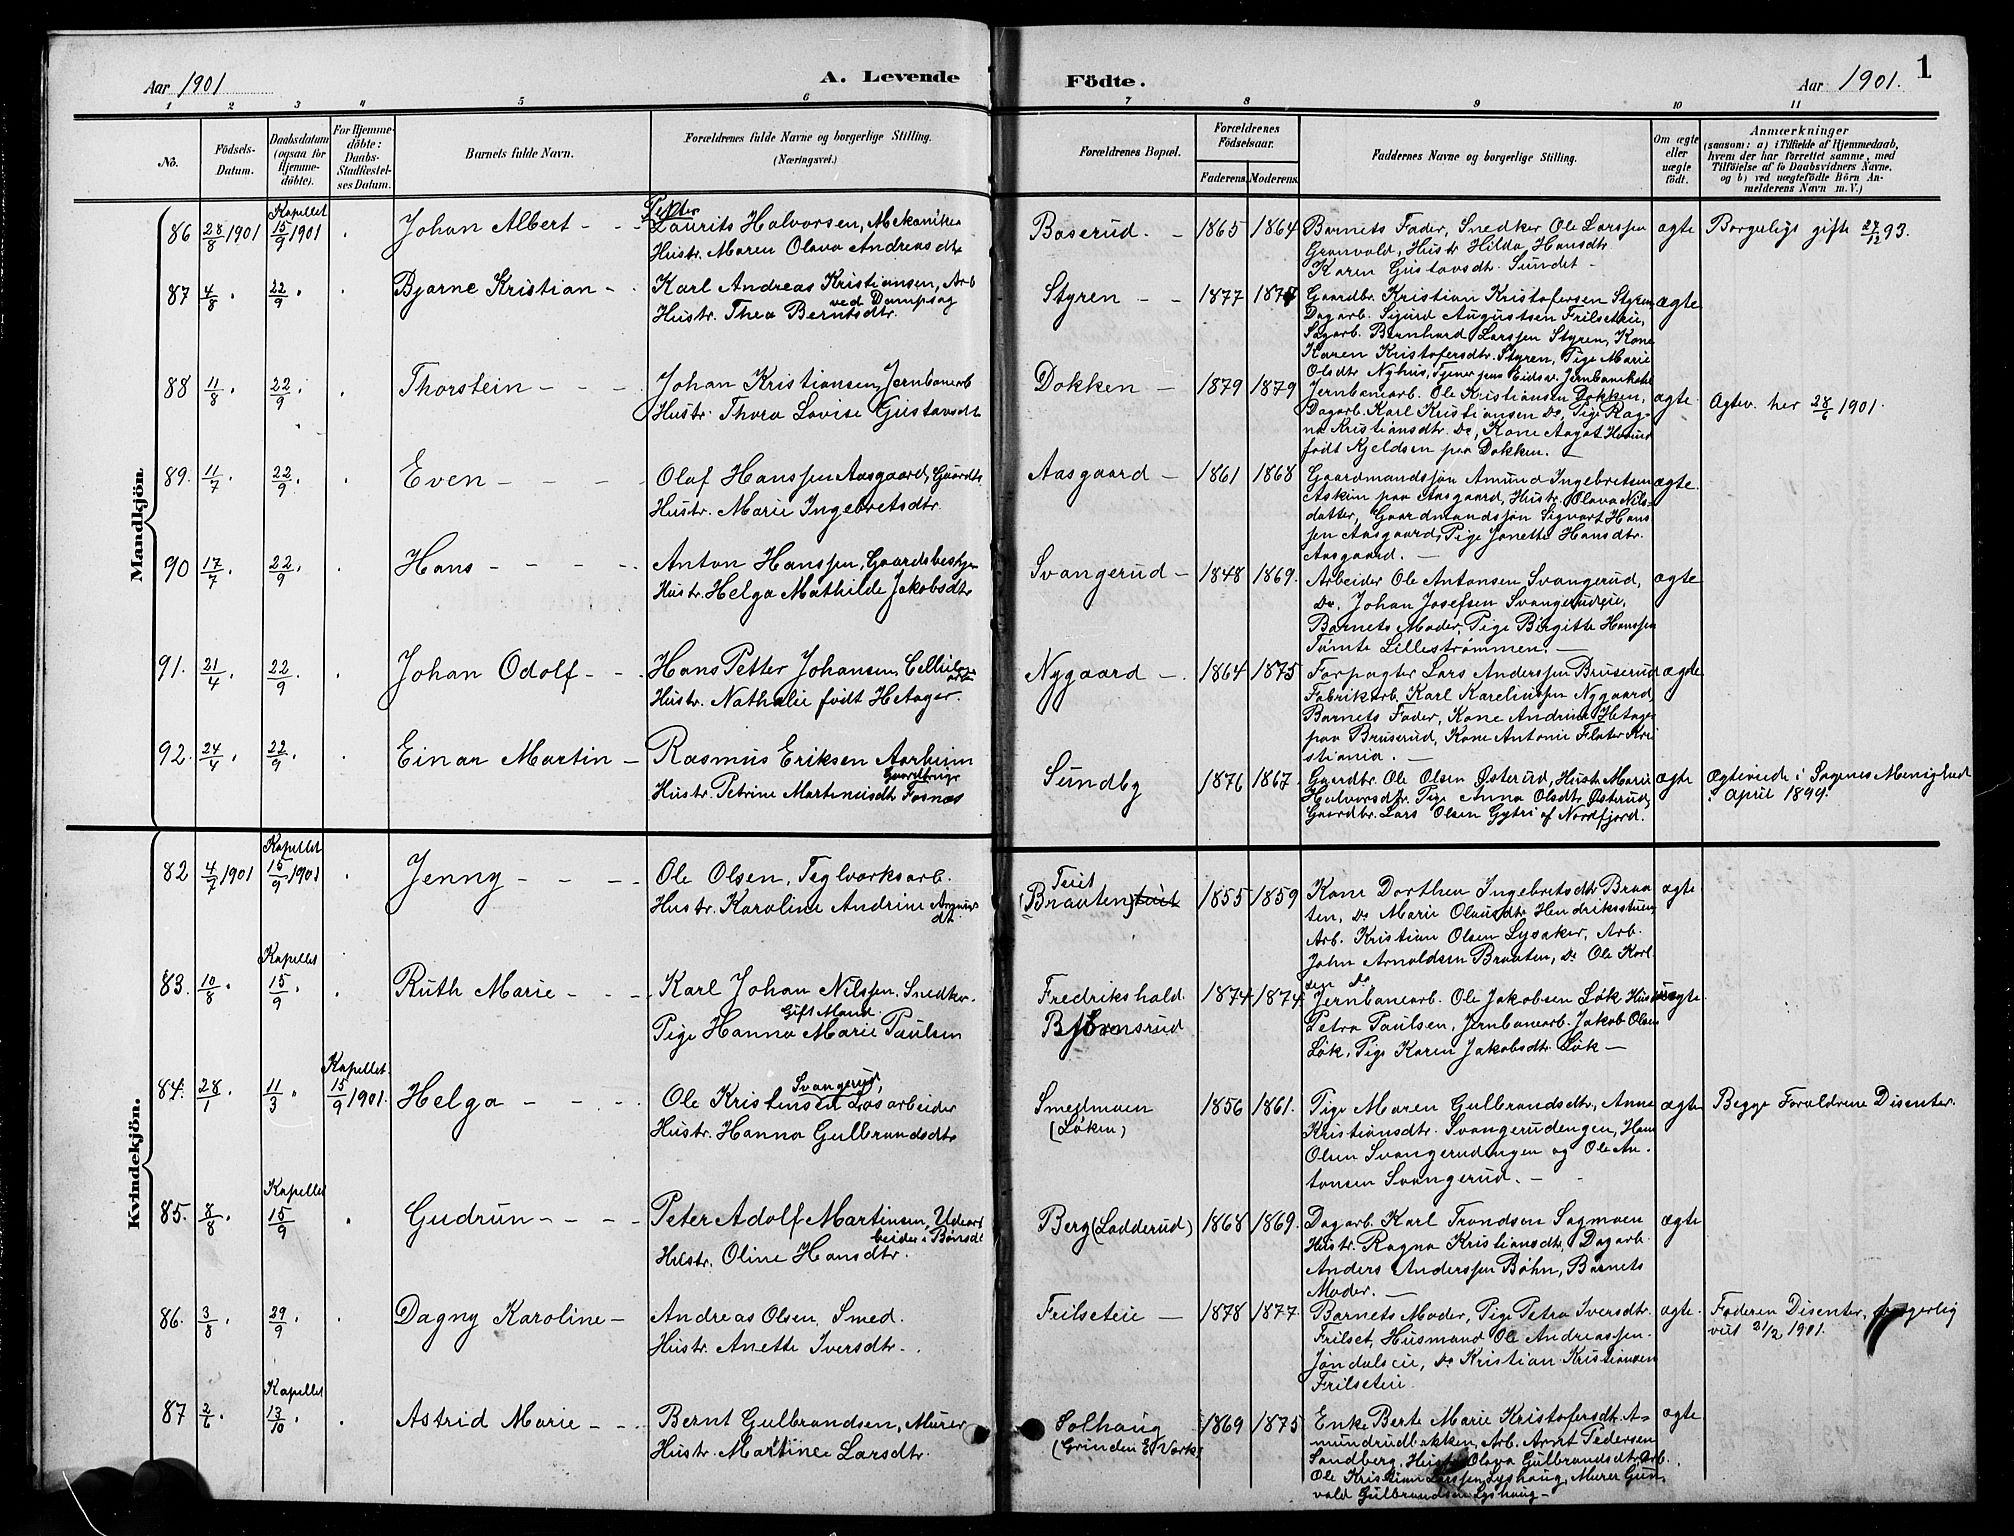 Aar 1901
A. Levende
Födte.
Aar 1901.
1
1 2 3 4 5 6 7 8 9 10 11
No.
Födsels-
Datum.
Daabsdatum
(ogsaa for
Hjemme-
döbte).
For Hjemme-
döbte:
Daabs-
Stadfæstel-
ses Datum.
Barnets fulde Navn.
Forældrenes fulde Navne og borgerlige Stilling.
(Næringsvei.)
Forældrenes Bopæl.
Forældrenes
Födselsaar.
Faderens. Moderens.
Faddernes Navne og borgerlige Stilling.
Om ægte
eller
uægte
født.
Anmærkninger
(saasom: a) i Tilfælde af Hjemmedaab,
hvem der har forrettet samme, med
Tilföielse af to Daabsvidners Navne,
og b) ved uægtefödte Börn An-
melderens Navn m. V.)
Mandkjön
86 28/8 1901 Kapellet 15/9 1901 Johan Albert
Laurits Halvorsen, Mekaniker
Hustr. Maren Olava Andreasdtr
Baserud. 1865 1864
Barnets Fader, Snedker Ole Larssen
Granvold, Hustr Hilda Hansdtr.
Karen Gustavsdtr. Sundet
ægte
Borgeligt gifte 27/12 93.
87 4/8 22/9 Bjarne Kristian
Karl Andreas Kristiansen, Arb
ved Dampsag
Hustr. Thea Berntsdtr.
Styren 1877
Gaardbr. Kristian Kristofersen Styren
Dagarb. Sigurd Augustsen Frilseteie,
Sagarb. Bernhard Larssen Styren, Kone
Karen Kristofersdtr. Styren, Pige Marie
Olsdtr Nyhus, Tjener paa Eidsv. Jernbanehotel
ægte
88 11/8 22/9 Thorstein
Johan Kristiansen, Jernbanearb
Hustr. Thora Lovise Gustavsdt
Dokken 1879 1879
Jernbanearb. Ole Kristiansen Dokken,
Dagarb. Karl Kristiansen Do, Pige Rag-
na Kristiansdtr. Do, Kone Aagot
født Kjeldsen paa Dokken.
ægte.
Ægtev. her 28/6 1901.
89. 11/7 22/9 Even
Olaf Hanssen Aasgaard, Gaardb
Hustr. Marie Ingebretsdtr.
Aasgaard 1861 1868
Gaardmandssøn Amund Ingebretsen
Askim paa Aasgaard, Hustr. Olava Nils-
datter, Gaardmandssøn Sigvart Hans
sen Aasgaard, Pige Janette Hansdtr.
Aasgaard.
ægte.
90 17/7 22/9 Hans
Anton Hanssen, Gaardsbestyr
Hustr. Helga Mathilde Jakobsdtr
Svangerud 1848 1869.
Arbeider Ole Antonsen Svangerud,
Do. Johan Josefsen Svangerudeie,
Barnets Moder, Pige Birgitte Hanssen
Tømte Lillestrømmen.
ægte
91. 21/4 22/9 Johan Odolf
Hans Petter Johansen
Hustr. Nathalie født Hetager.
Nygaard 1864 1875
Forpagter Lars Anderssen Bruserud
Fabrikarb. Karl Kareliussen Nygaard,
Barnets Fader, Kone Andrine Hetager
paa Bruserud, Kone Antonie Flater Kri
stiania.
ægte
92. 24/4 22/9 Einar Martin
Rasmus Eriksen Aarheim
Gaardbruge
Hustr. Petrine Martinusdtr Fosnæs
Sundby 1876 1867
Gaardbr. Ole Olsen Østerud, Hustr. Marie
Halvorsdtr. Pige Anna Olsdtr. Østerud,
Gaardbr. Lars Olsen Gytri af Nordfjord.
ægte
Ægteviede i Sagenes Menighed
i April 1899.
Kvindekjön.
82 4/7 1901 Kapellet 15/9 1901 Jenny
Ole Olsen, Teglværksarb.
Hustr. Karoline Andrine
dt.
Tuit
(Braaten) 1855 1859
Kone Dorthea Ingebretsdtr Braa
ten, Do Marie Olausdtr Hendriksstuen,
Arb. Kristian Olsen Lysaker, Arb.
John Arnoldsen Braaten, Do Ole Karl
sen Do
ægte
83. 10/8 Kapellet 15/9 Ruth Marie
Karl Johan Nilssen, Snedker.
Gift Mand.
Pige Hanna Marie Paulsen
Fredrikshald.
Bjørnsrud
1874 1874
Jernbanearb. Ole Jakobsen Løk Hustr
Petra Paulsen, Jernbanearb. Jakob Olsen
Løk, Pige Karen Jakobsdtr. Løk
uægte
84. 28/1 11/3 Kapellet 15/9 1901. Helga
Svangerud,
Ole Kristensen Løsarbeider
Hustr. Hanna Gulbrandsdtr
Smedmoen
(Løken)
1856 1861.
Pige Maren Gulbrandsdtr, Anne
Kristiansdtr. Svangerudengen, Hans
Olsen Svangerudengen og Ole An-
tonsen Svangerud.
ægte
Begge Forældrene Disenter.
85. 8/8 Kapellet 15/9 Gudrun
Peter Adolf Martinsen, Udear
beider i Bønsdl
Hustr. Oline Hansdtr.
Berg (Ladderud) 1868 1869.
Dagarb. Karl Trondsen Sagmoen
Hustr. Ragna Kristiansdtr, Dagarb.
Anders Anderssen Bøhn, Barnets
Moder.
ægte
86. 3/8 29/9 Dagny Karoline
Andreas Olsen, Smed.
Hustr. Anette Iversdtr.
Frilseteie 1878 1877
Barnets Moder, Pige Petra Iversdtr.
Frilset, Husmand Ole Andreassen
Jøndalseie, Do Kristian Kristiansen
Frilseteie
ægte.
Faderen Disenter, borgerlig
viet 21/2 1901.
87 2/6 Kapellet 13/10 Astrid Marie
Bernt Gulbrandsen, Murer
Hustr. Martine Larsdtr.
Solhaug
(Grinden E. Værk)
1869 1875
Enke Berte Marie Kristofersdtr. A-
mundrudbakken, Arb. Arnt Pedersen
Sandberg, Hustr Olava Gulbrandsdtr, Arb.
Ole Kristian Larssen Lyshaug, Murer Gun-
vald Gulbrandsen Lyshaug
ægte